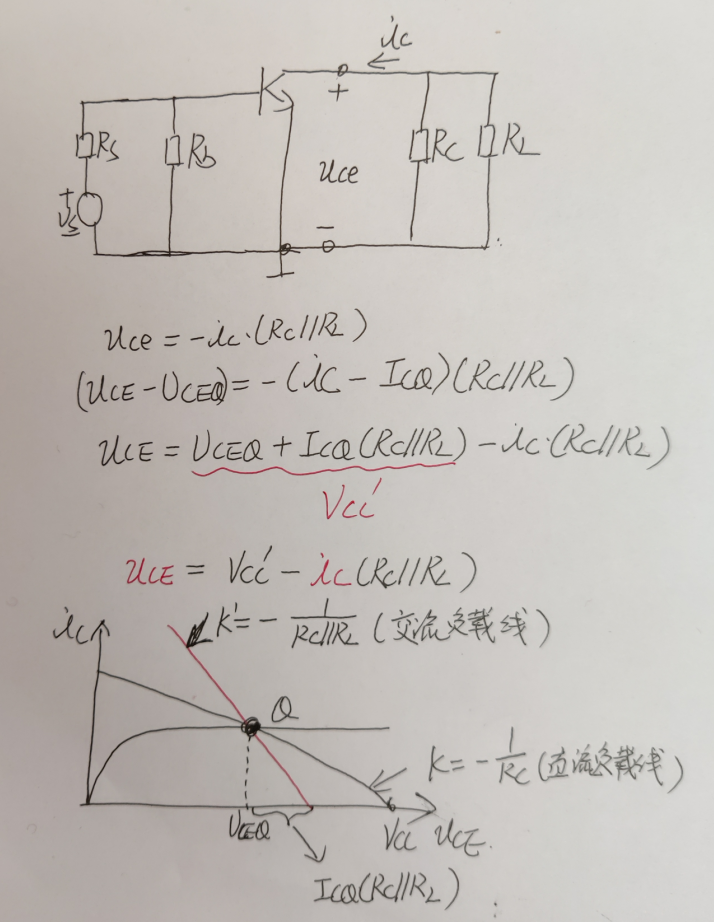 ic
+
Rs
Rb
uce
Rc
RL
+
Us
-
uce = -ic·(Rc//RL)
(uCE - UCEQ) = -(iC - ICQ)(Rc//RL)
uCE = UCEQ + ICQ(Rc//RL) - ic·(Rc//RL)
Vcc'
uCE = Vcc' - ic(Rc//RL)
ic
K' = - 1/Rc//RL (交流负载线)
Q
K = - 1/Rc (直流负载线)
UCEQ
Vcc
uCE
ICQ(Rc//RL)